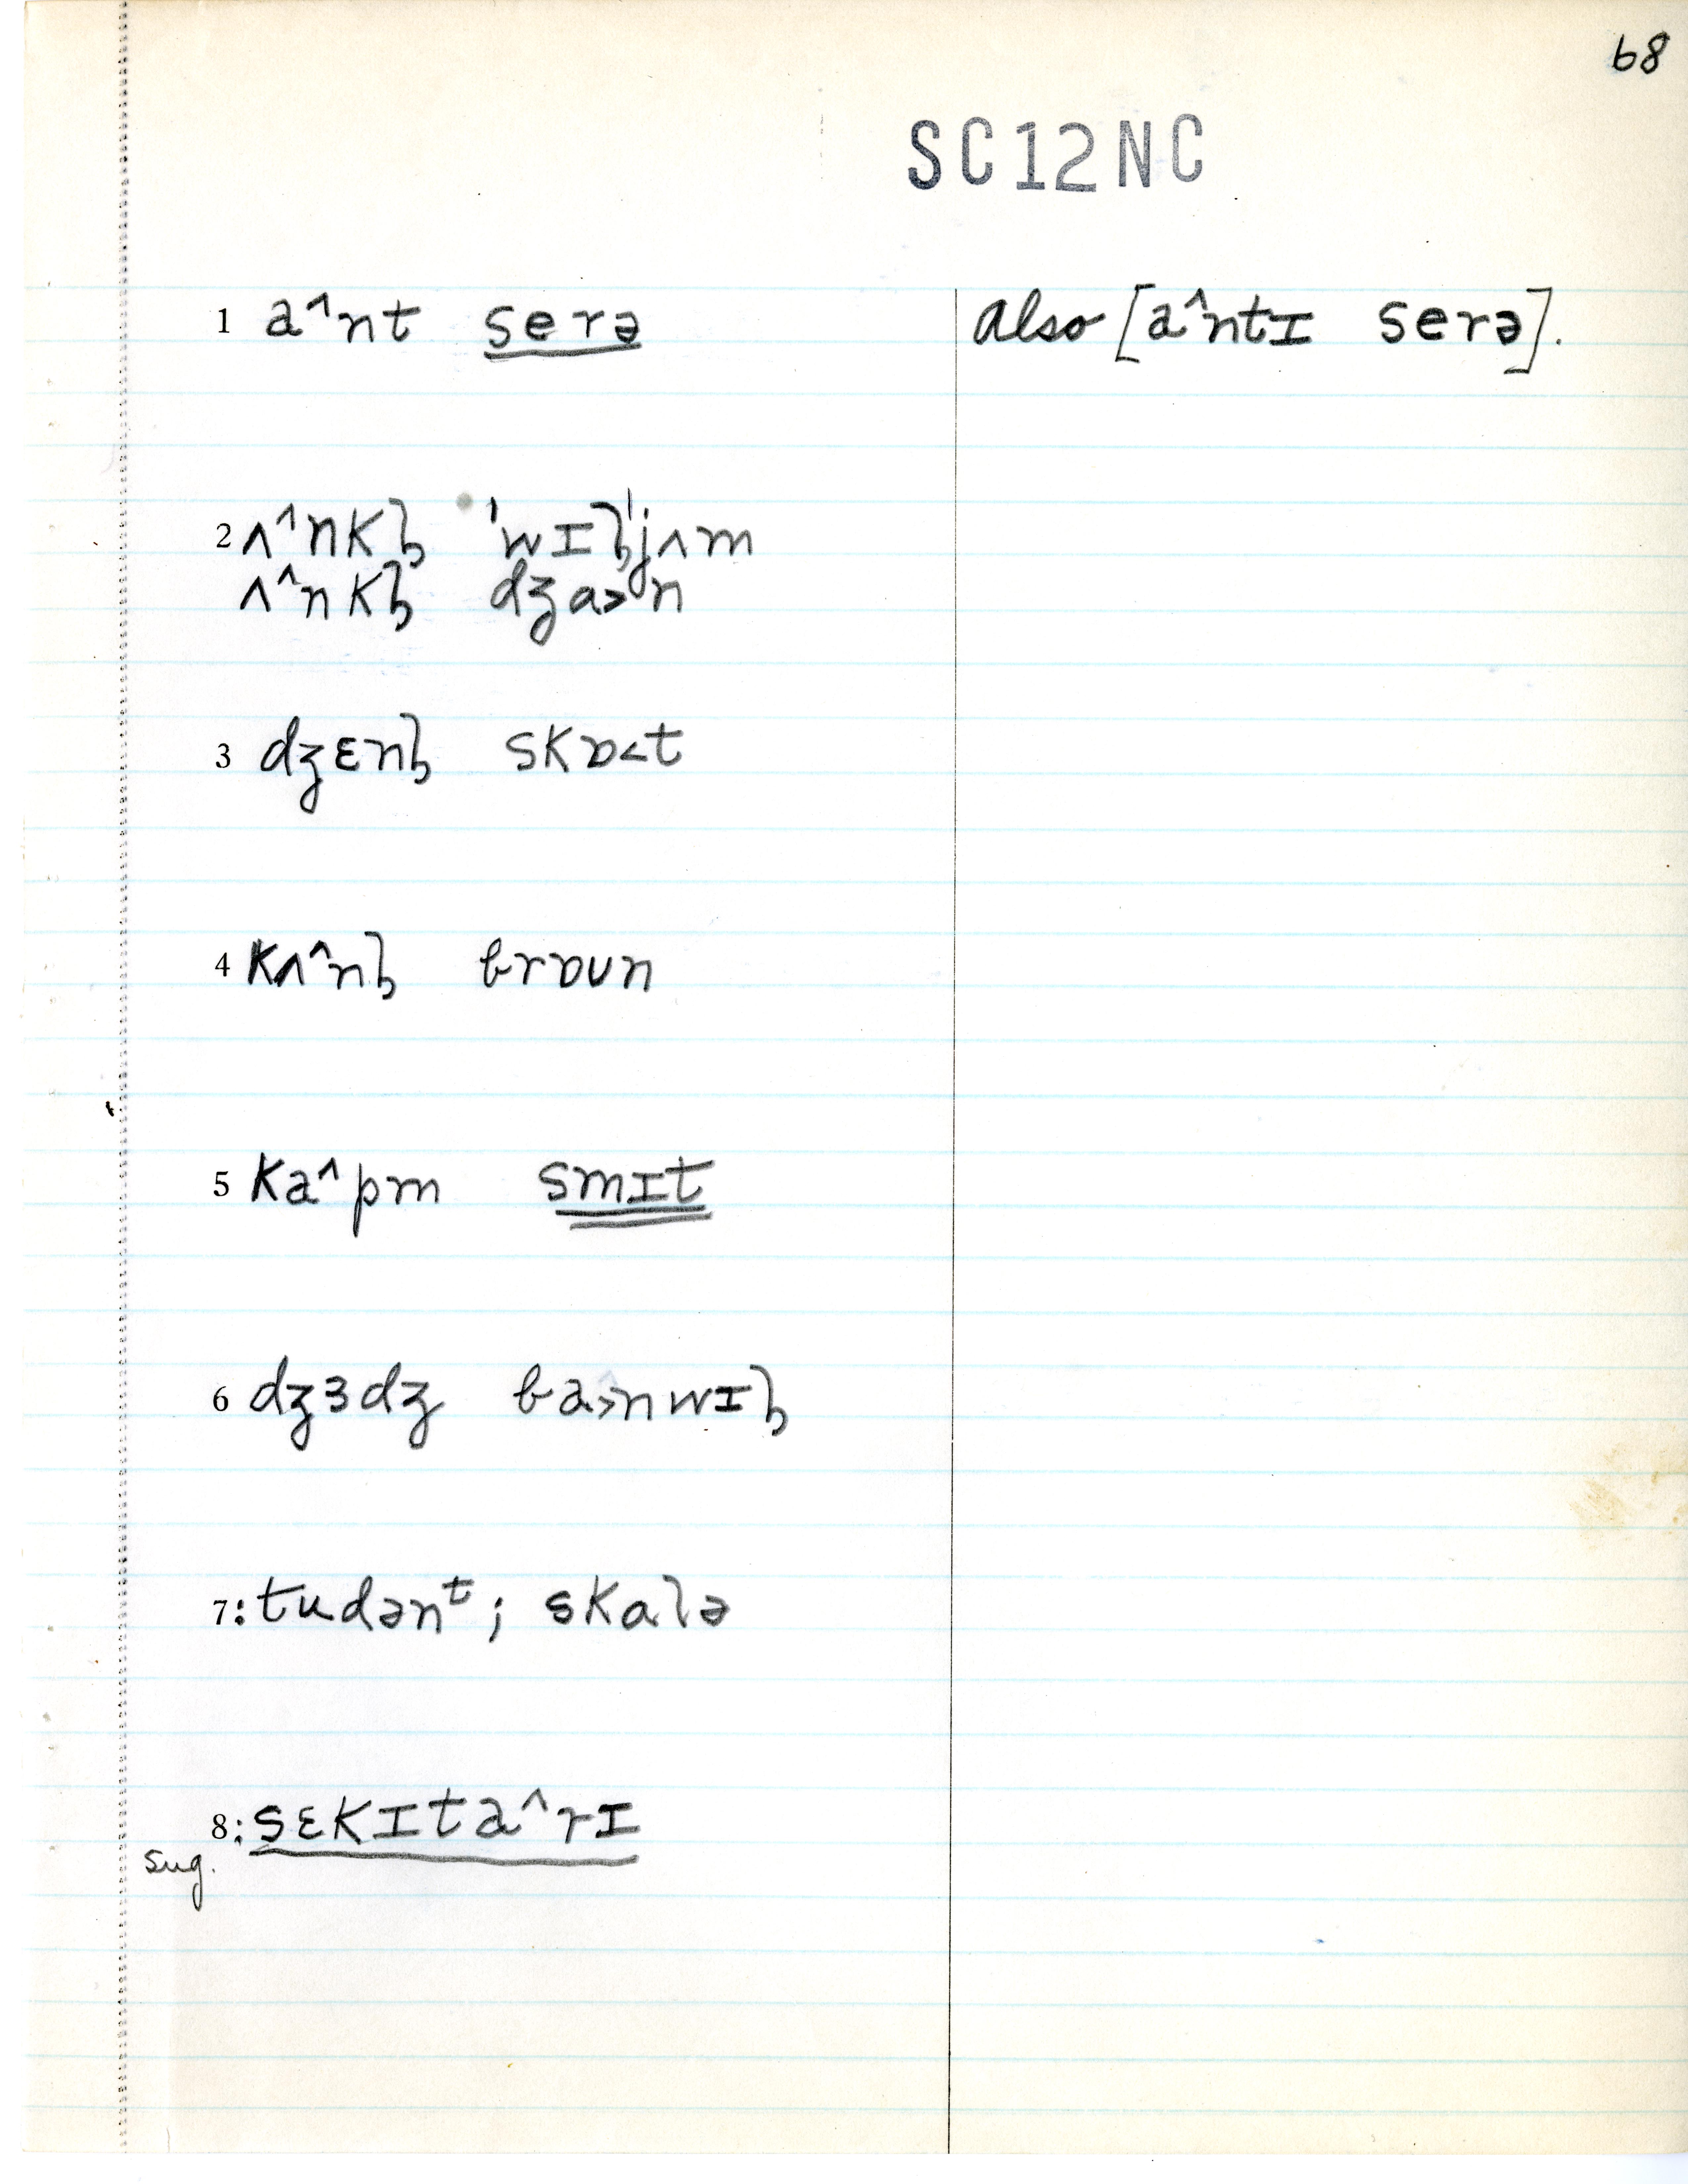 68
SC12NC
1 a^nt serə also [a^ntɪ serə].
2 ʌ^nkɫ̩ 'wɪɫ̩'jʌm
ʌ^nkɫ̩ dʒa>n
3 dʒɛnɫ̩ skɒ<t
4 kʌ^nɫ̩ brɒun
5 ka^pm smɪt
6 dʒɜdʒ ba>nwɪɫ̩
7: tudənᵗ; skalə
8: sɛkɪta^rɪ
sug.